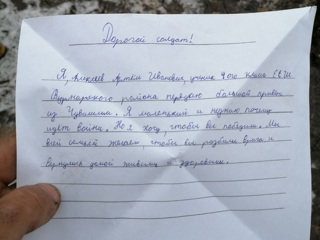 Дорогой солдат!
Я, Алексеев Артём Иванович, ученик 4ого класса
района передаю большой привет
из Чувашии. Я маленький и не знаю почему
идёт война. Но я хочу, чтобы вы победили. Мы
всей семьёй желаем, чтобы вы разбили врага и
вернулись домой живыми и здоровыми.